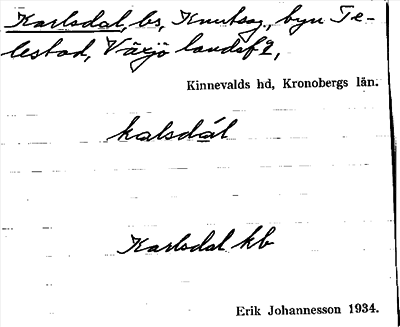 Karlsdal, bs, Knutsg., byn Te-
lestad, Växjö landsf 2,
Kinnevalds hd, Kronobergs län.
kalsdál
Karlsdal kb
Erik Johannesson 1934.